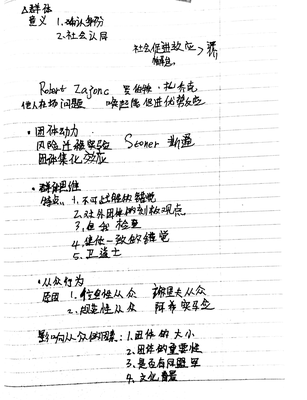 △群体
意义 1.确认身份
2.社会认同
社会促进效应
Robert Zajonc 罗伯特·扎荣克
他人在场问题 唤起能促进优势反应
·团体动力
风险迁移实验 Stoner 斯通
团体集化效应
·群体思维
特点:1.不可战胜的错觉
2.对外团体的刻板观点
3.自我检查
4.集体一致的错觉
5.卫道士
·从众行为
原因 1.信息性从众 谢里夫从众
2.规范性从众 阿希实验
影响从众的因素:1.团体的大小
2.团体的重要性
3.是否有同盟军
4.文化背景